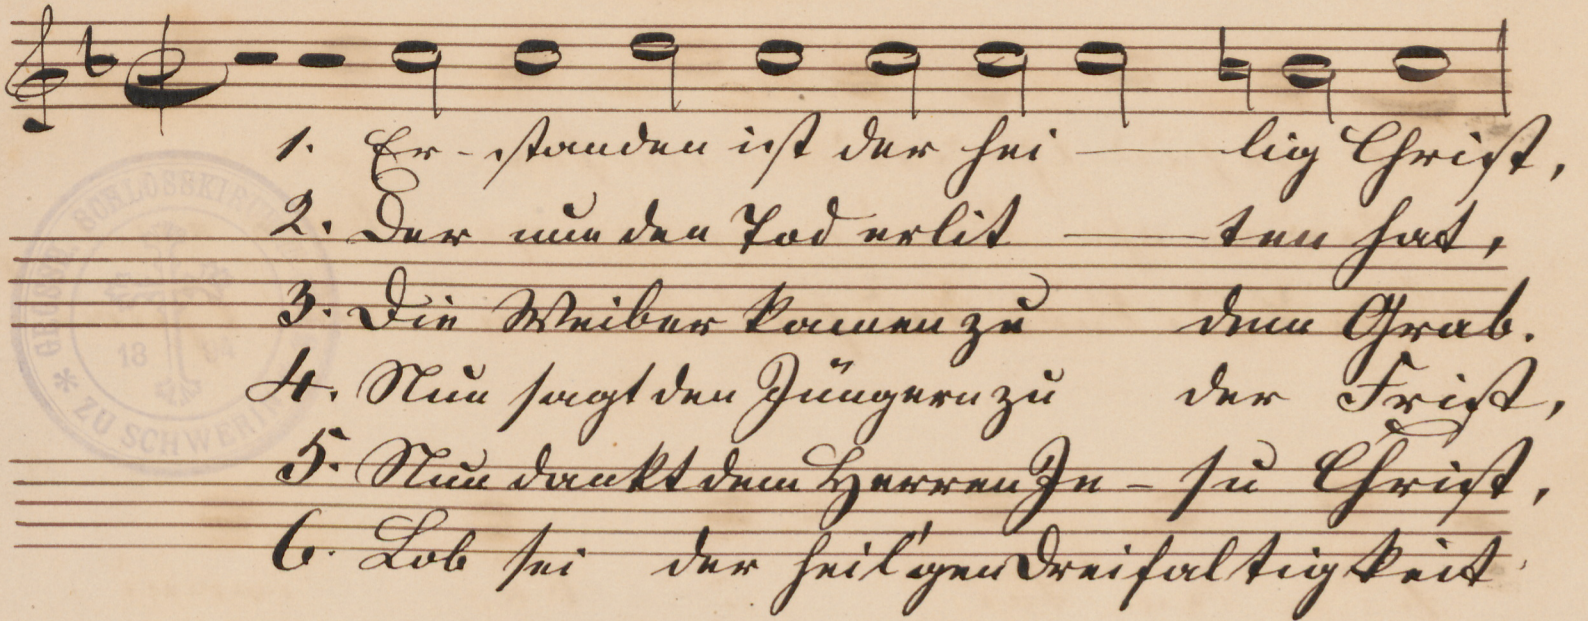 1. Er-standen ist der hei — lig Christ,
2. Der nun den Tod erlit — ten hat,
3. Die Weiber kamen zu dem Grab.
4. Nun sagt den Jüngern zu der Frist,
5. Nun dankt dem Herren Je-su Christ,
6. Lob sei der heil'gen Dreifaltigkeit
SCHLOSSKIRCHE
ZU SCHWERIN
18